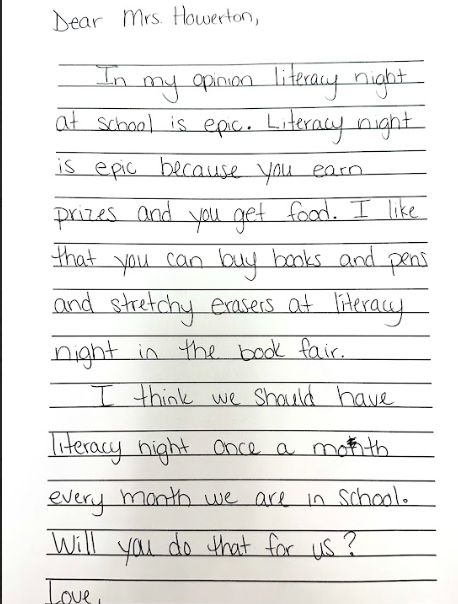 Dear Mrs. Howerton,
In my opinion literacy night
at school is epic. Literacy night
is epic because you earn
prizes and you get food. I like
that you can buy books and pens
and stretchy erasers at literacy
night in the book fair.
I think we should have
literacy night once a month
every month we are in school.
Will you do that for us?
Love,